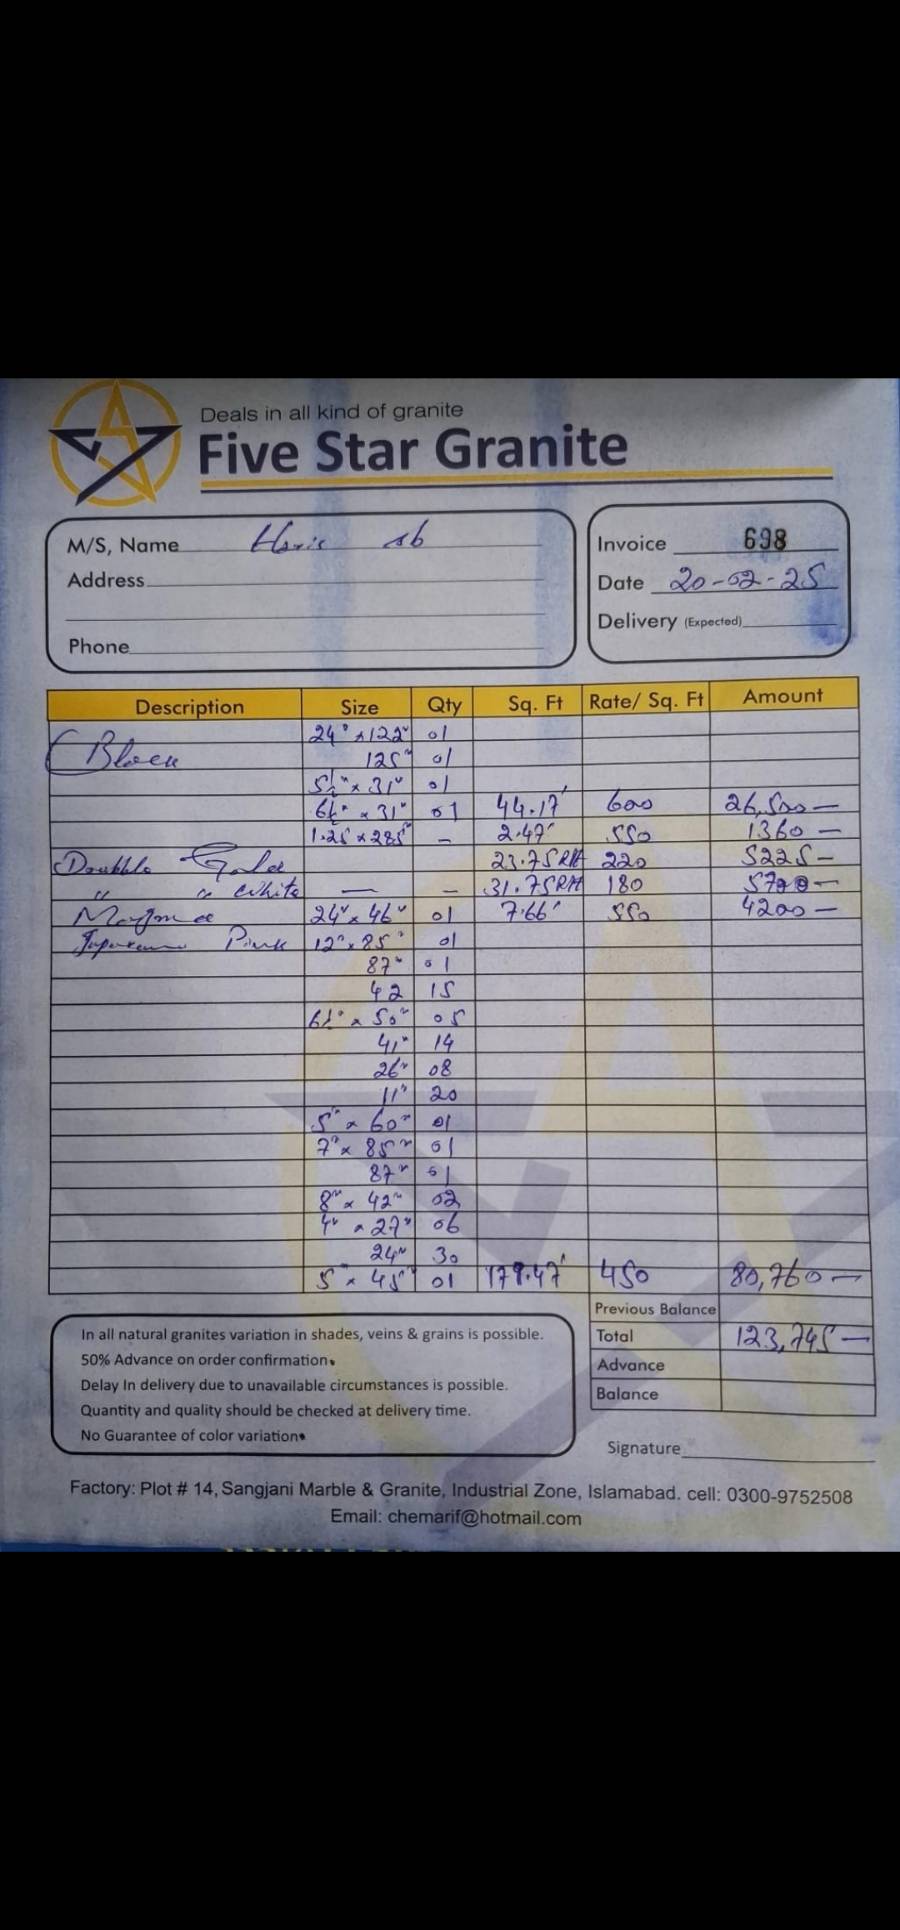 Deals in all kind of granite
Five Star Granite
M/S, Name Haris sb
Address
Phone
Invoice 698
Date 20-02-25
Delivery (Expected)
Description Size Qty Sq. Ft Rate/ Sq. Ft Amount
24" x 122" 01
Black 125" 01
5½" x 31" 01
6½" x 31" 01 44.17' 600 26,500 —
1.25 x 285" — 2.47' 550 1360 —
Doubble Gola 23.75 RH 220 5225 —
" " White — — 31.75 RH 180 5700 —
24" x 46" 01 7.66' 550 4200 —
Pink 12" x 85" 01
87" 01
42 15
6½" x 50" 05
41" 14
26" 08
11" 20
5" x 60" 01
7" x 85" 01
87" 01
8" x 42" 02
4" x 27" 06
24" 30
5" x 45" 01 179.47' 450 80,760 —
Previous Balance
Total 123,745 —
Advance
Balance
In all natural granites variation in shades, veins & grains is possible.
50% Advance on order confirmation.
Delay In delivery due to unavailable circumstances is possible.
Quantity and quality should be checked at delivery time.
No Guarantee of color variation.
Signature
Factory: Plot # 14, Sangjani Marble & Granite, Industrial Zone, Islamabad. cell: 0300-9752508
Email: chemarif@hotmail.com